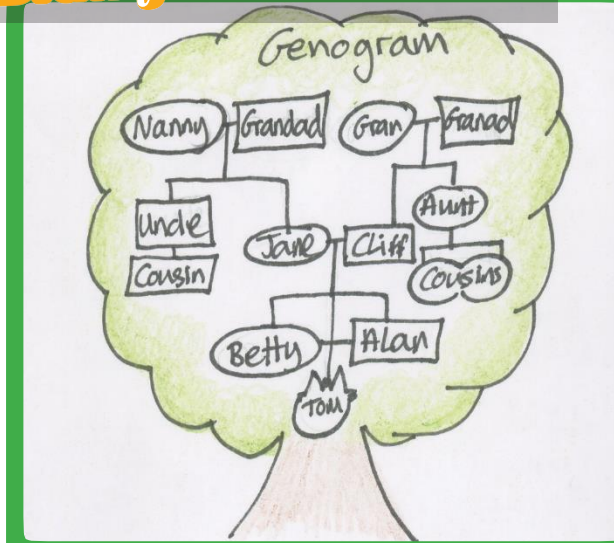 Genogram
Nanny Grandad Gran Granad
Uncle Jane Cliff Aunt
Cousin Cousins
Betty Alan
Tom